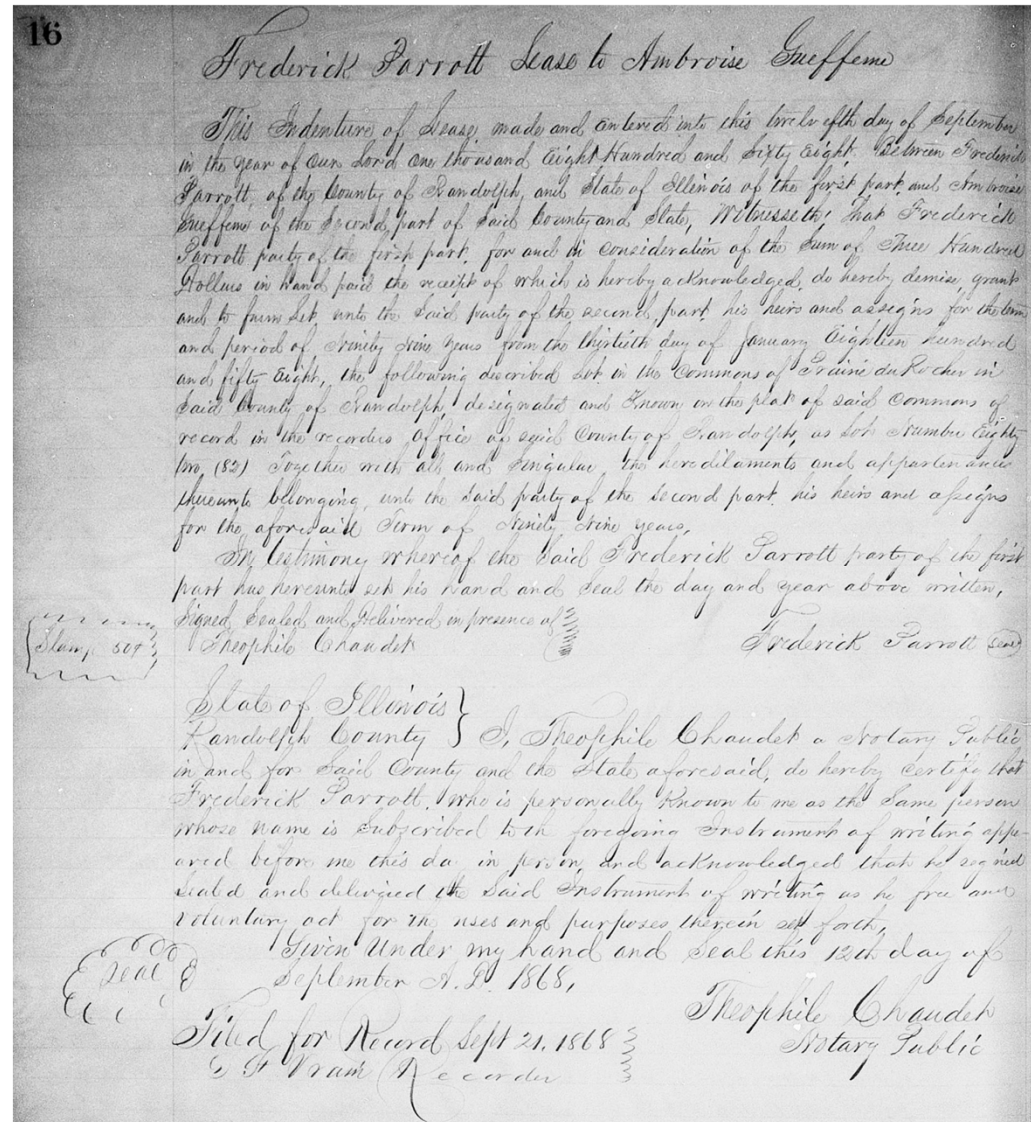 16
Frederick Parrott Lease to Ambroise Gueffeme
This Indenture of Lease, made and entered into this twelvefth day of September
in the year of our Lord one thousand Eight Hundred and Sixty Eight. Between Frederick
Parrott, of the County of Randolph, and State of Illinois of the first part, and Ambroise
Gueffeme of the Second part of Said County and State, Witnesseth, That Frederick
Parrott party of the first part, for and in consideration of the Sum of Three Hundred
Dollars in hand paid the receipt of which is hereby acknowledged, do hereby demise, grant
and to farm Let unto the Said party of the second part his heirs and assigns for the term
and period of Ninety Nine Years from the thirtieth day of January Eighteen hundred
and fifty Eight, the following described Lot in the Commons of Prairie du Rocher in
Said County of Randolph, designated and Known on the plat of said Commons of
record in the recorders office of said County of Randolph, as Lot Number Eighty
two, (82) Together with all and Singular the hereditaments and appartenances
thereunto belonging, unto the Said party of the Second part his heirs and assigns
for the aforesaid Term of Ninety Nine years,
In testimony whereof the Said Frederick Parrott party of the first
part has hereunto set his hand and Seal the day and year above written,
Signed, Sealed and Delivered in presence of
Theophile Chaudet
Frederick Parrott Seal
Stamp 50¢
State of Illinois
Randolph County } I, Theophile Chaudet a Notary Public
in and for Said County and the State aforesaid, do hereby Certify that
Frederick Parrott, who is personally Known to me as the Same person
whose name is Subscribed to th foregoing Instrument of writing appe-
ared before me this da in person, and acknowledged that he signed
Sealed and delivered th Said Instrument of writing as he free and
Voluntary act for th uses and purposes therein set forth,
Given Under my hand and Seal this 12th day of
September A. D. 1868,
Seal
Theophile Chaudet
Notary Public
Filed for Record Sept 21, 1868
Recorder